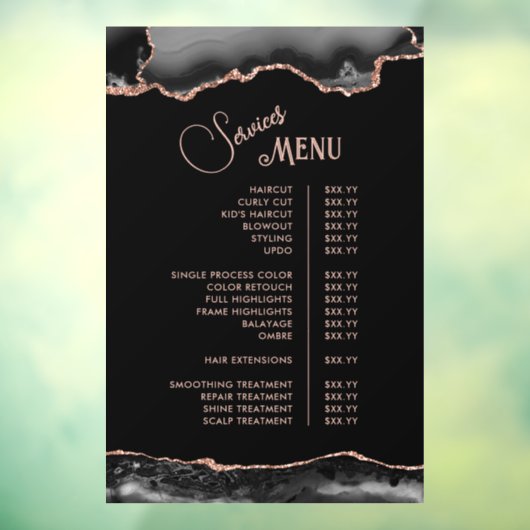 Services
MENU
HAIRCUT $XX.YY
CURLY CUT $XX.YY
KID'S HAIRCUT $XX.YY
BLOWOUT $XX.YY
STYLING $XX.YY
UPDO $XX.YY
SINGLE PROCESS COLOR $XX.YY
COLOR RETOUCH $XX.YY
FULL HIGHLIGHTS $XX.YY
FRAME HIGHLIGHTS $XX.YY
BALAYAGE $XX.YY
OMBRE $XX.YY
HAIR EXTENSIONS $XX.YY
SMOOTHING TREATMENT $XX.YY
REPAIR TREATMENT $XX.YY
SHINE TREATMENT $XX.YY
SCALP TREATMENT $XX.YY